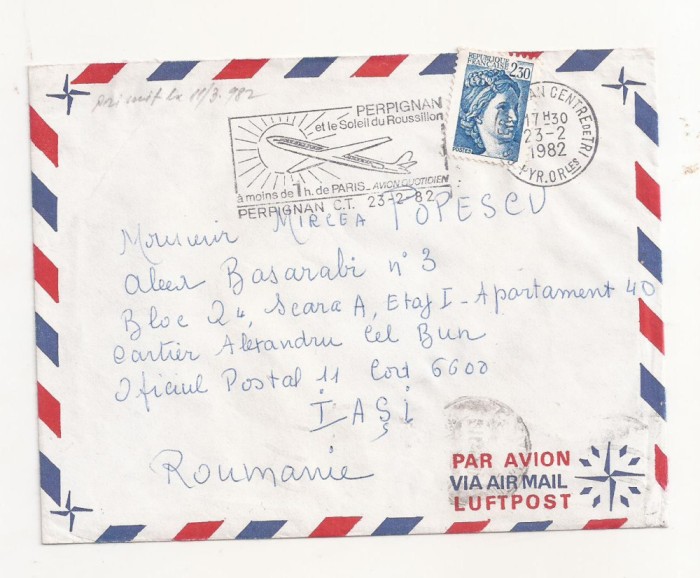 primit la 11/3.982
REPUBLIQUE
FRANÇAISE
2,30
POSTES
PERPIGNAN
et le Soleil du Roussillon
à moins de 1 h. de PARIS_ AVION QUOTIDIEN
PERPIGNAN C.T. 23-2-82
AN CENTRE DE TRI
17H30
23-2
1982
PYR. ORLES
Monsieur MIRCEA POPESCU
Aleea Basarabi n° 3
Bloc 24, Scara A, Etaj I - Apartament 40
Cartier Alexandru Cel Bun
Oficiul Postal 11 Cod 6600
IAŞI
Roumanie
PAR AVION
VIA AIR MAIL
LUFTPOST